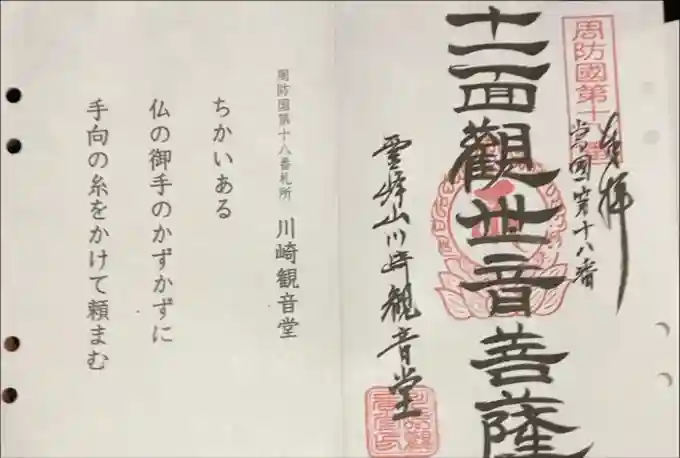 周防國第十八番
奉拝
当国第十八番
十一面觀世音菩薩
雲峰山川崎観音堂
周防国第十八番札所 川崎観音堂
ちかいある
仏の御手のかずかずに
手向の糸をかけて頼まむ